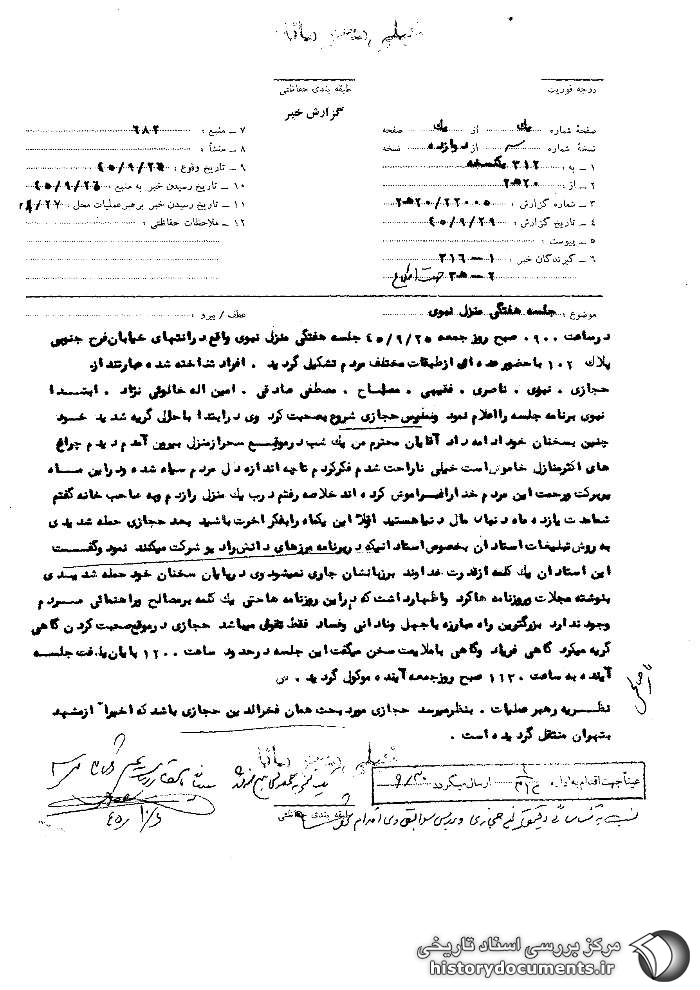 درجه فوریت
طبقه بندی حفاظتی
گزارش خبر
صفحهٔ شماره یک از یک صفحه
نسخهٔ شماره سه از دوازده نسخه
۱ ـ به : ۳۱۲
۲ ـ از : ۲۰ھ۲
۳ ـ شماره گزارش : ۲۰/۲۲۰۰۵ھ۲
۴ ـ تاریخ گزارش : ۴۵/۹/۲۹
۵ ـ پیوست :
۶ ـ گیرندگان خبر : ۱ـ ۳۱۶
۲ ـ
۷ ـ منبع : ۶۸۲
۸ ـ منشأ :
۹ ـ تاریخ وقوع : ۴۵/۹/۲۵
۱۰ ـ تاریخ رسیدن خبر به منبع : ۴۵/۹/۲۵
۱۱ ـ تاریخ رسیدن خبر برهبرعملیات محل :
۱۲ ـ ملاحظات حفاظتی :
موضوع : جلسه هفتگی منزل نبوی
عطف / پیرو :
درساعت ۹۰۰ صبح روز جمعه ۴۵/۹/۲۵ جلسه هفتگی منزل نبوی واقع درانتهای خیابان فرح جنوبی
پلاک ۱۰۲ باحضور عده ای ازطبقات مختلف مردم تشکیل گردید . افراد شناخته شده عبارتنداز:
حجازی . نبوی . ناصری . فقیهی . مصلح . مصطفی صادقی . امین اله خالوئی نژاد . ابتدا
نبوی برنامه جلسه رااعلام نمود وسپس حجازی شروع بصحبت کرد وی درابتدا باحال گریه شدید خود
چنین بسخنان خودادامه داد آقایان محترم من یک شب درموقع سحرازمنزل بیرون آمدم دیدم چراغ
های اکثرمنازل خاموش است خیلی ناراحت شدم فکرکردم تاچه اندازه دل مردم سیاه شده ودراین ماه
پربرکت ورحمت این مردم خدارافراموش کرده اند خلاصه رفتم درب یک منزل رازدم وبه صاحب خانه گفتم
شماهمت یازده ماه دنبال مال دنیاهستید اقلاً این یکماه رابفکرآخرت باشید بعد حجازی حمله شدیدی
به روش تبلیغات استادان بخصوص استادانیکه دربرنامه مرزهای دانش رادیو شرکت میکنند نمود وگفت
این استادان یک کلمه ازقدرت خداوند برزبانشان جاری نمیشود وی درپایان سخنان خود حمله شدیدی
بنوشته مجلات وروزنامه هاکرد واظهارداشت که دراین روزنامه هاحتی یک کلمه برمصالح وراهنمائی مردم
وجود ندارد بزرگترین راه مبارزه باجهل ونادانی وفساد فقط تقوی میباشد حجازی درموقع صحبت کردن گاهی
گریه میکرد گاهی فریاد وگاهی باملایمت سخن میگفت این جلسه درحدود ساعت ۱۲۰۰ پایان یافت جلسه
آینده به ساعت ۱۱۳۰ صبح روزجمعه آینده موکول گردید .
نظریه رهبر عملیات . بنظرمیرسد حجازی مورد بحث همان فخرالدین حجازی باشد که اخیراً ازمشهد
بتهران منتقل گردیده است .
عیناً جهت اقدام به اداره ۳۱۲ ارسال میگردد ۹/۳۰
طبقه بندی حفاظتی
مرکز بررسی اسناد تاریخی
historydocuments.ir